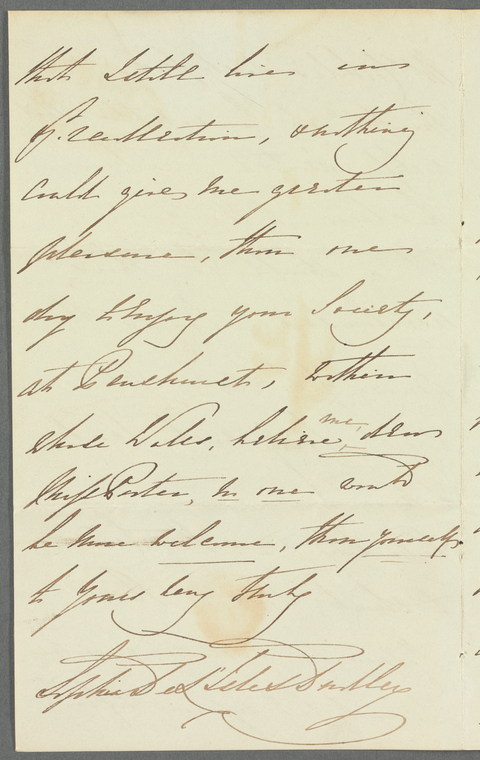 that I still live in
yr. recollection, & nothing
could give me greater
pleasure, than one
day to enjoy your Society,
at Penshurst, within
whose Walls, believe me, dear
Miss Porter, no one would
be more welcome, than yourself,
to yours very truly
Sophia De L'Isle & Dudley